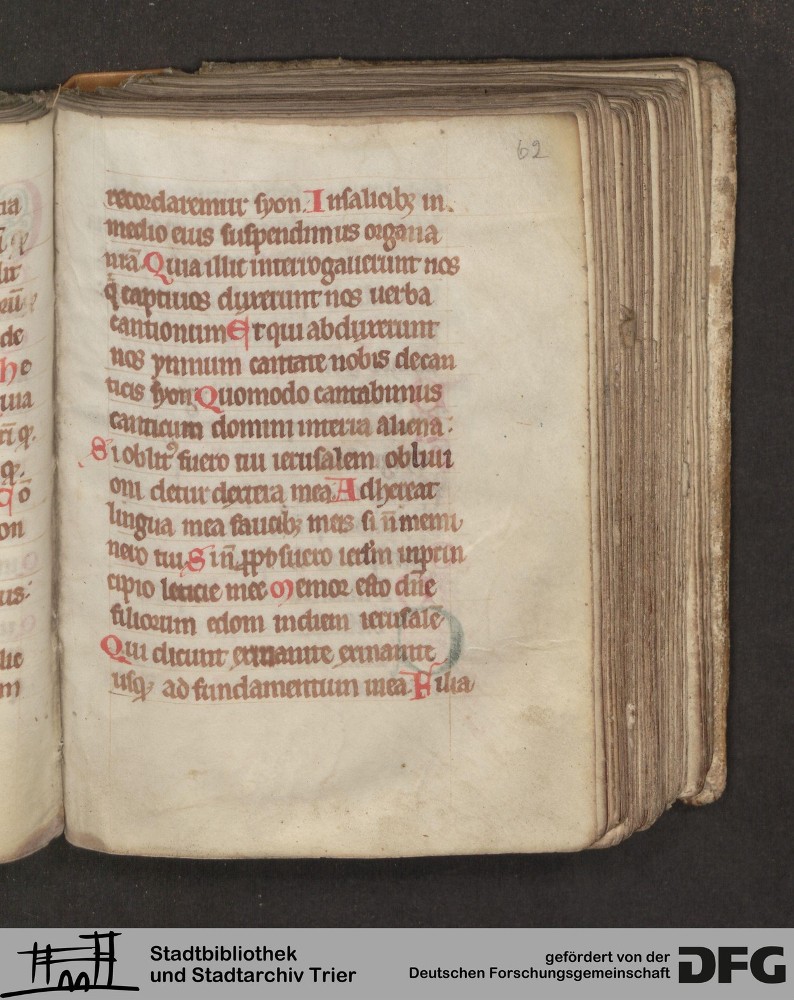 62
recordaremur syon. In salicibꝫ in
medio eius suspendimus organa
nr̄a Quia illic interrogauerunt nos
q̇ captiuos duxerunt nos uerba
cantionum Et qui abduxerunt
nos ymnum cantate nobis decan
ticis syon Quomodo cantabimus
canticum domini interra aliena:
Si oblitꝰ fuero tui ierusalem obliui
oni detur dextera mea Adhereat
lingua mea faucibꝫ meis si n̄ memi
nero tui Si n̄ ꝓpo suero ierl̄m inprin
cipio leticie mee Memor esto dn̄e
filiorum edom indiem ierusalē
Qui dicunt exinanite exinanite
usqꝫ ad fundamentum inea Filia
Stadtbibliothek
und Stadtarchiv Trier
gefördert von der
Deutschen Forschungsgemeinschaft
DFG